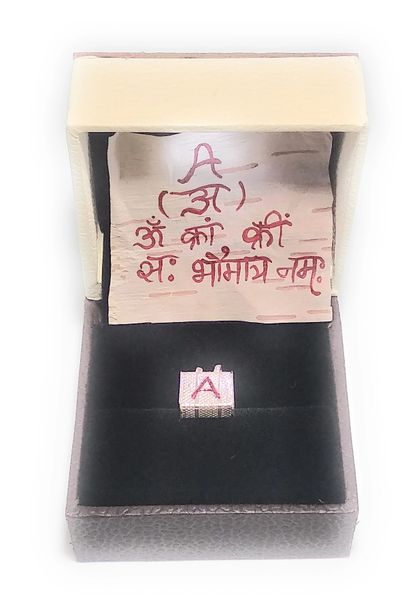 A
(अ)
ॐ क्रां क्रीं
सः भौमाय नमः
A